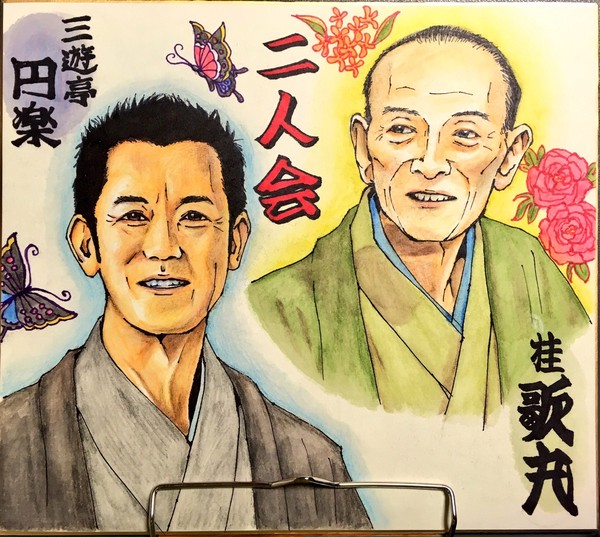 三遊亭
円楽
二人会
桂
歌丸